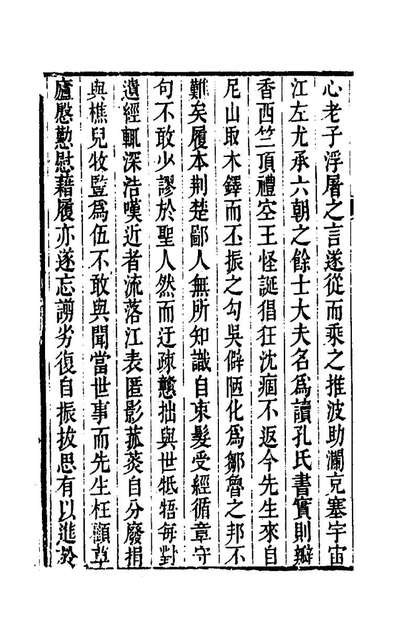 心老子浮屠之言遂從而乘之推波助瀾充塞宇宙
江左尤承六朝之餘士大夫名爲讀孔氏書實則瓣
香西竺頂禮空王怪誕猖狂沈痼不返今先生來自
尼山取木鐸而丕振之勾吳僻陋化爲鄒魯之邦不
難矣履本荆楚鄙人無所知識自束髮受經循章守
句不敢少謬於聖人然而迂疎戇拙與世牴牾每對
遺經輒深浩嘆近者流落江表匿影菰蘆自分廢捐
與樵兒牧豎爲伍不敢與聞當世事而先生枉顧草
廬慇懃慰藉履亦遂忘謭劣復自振拔思有以進於